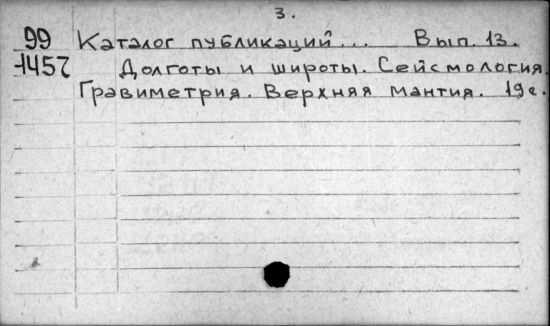 3.
99 Каталог публикаций... Вып. 13.
1457 Долготы и широты. Сейсмология.
Гравиметрия. Верхняя мантия. 19с.